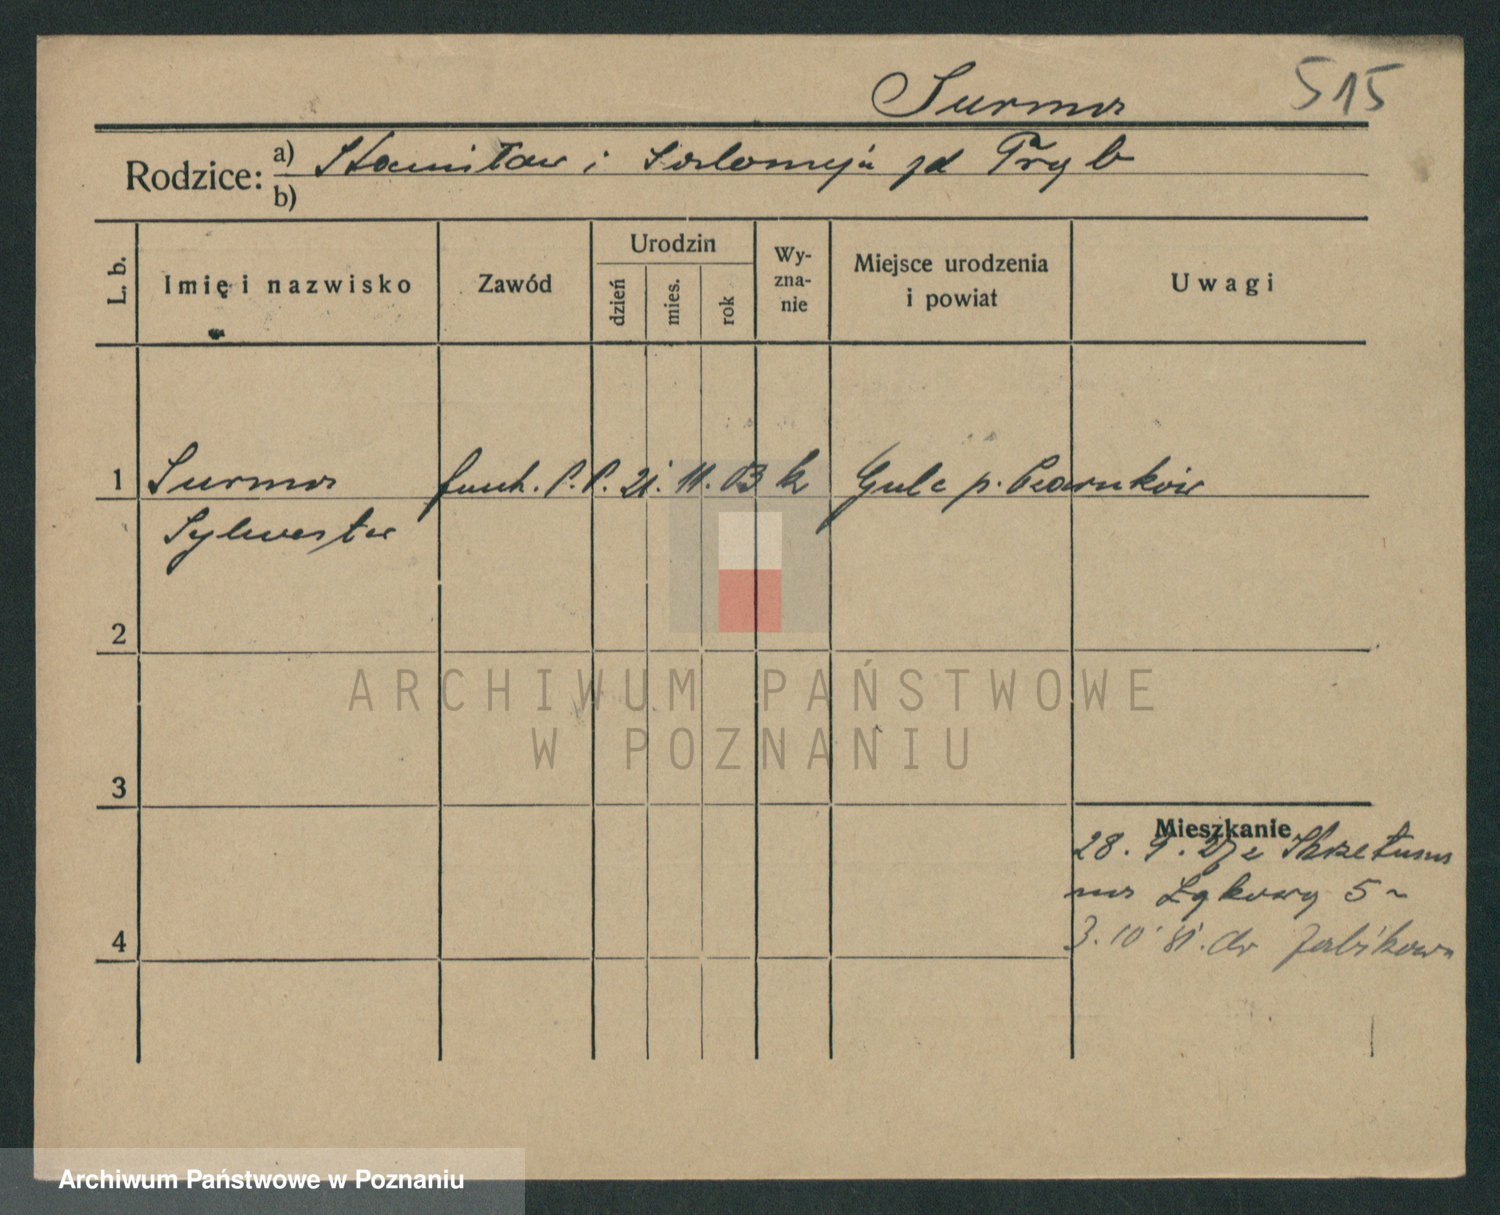 Surma 515
Rodzice: a) Stanisław i Salomeja zd Pryb
b)
L. b. Imię i nazwisko Zawód Urodzin dzień mies. rok Wy-zna-nie Miejsce urodzenia i powiat Uwagi
1 Surma funk. P.P. 21. 11. 03 k Gulc p. Czarnków
Sylwester
2
ARCHIWUM PAŃSTWOWE
W POZNANIU
3
Mieszkanie
28. 9. z Skrzetusza
na Łąkowy 5
4
3. 10 do Żabikowa
Archiwum Państwowe w Poznaniu